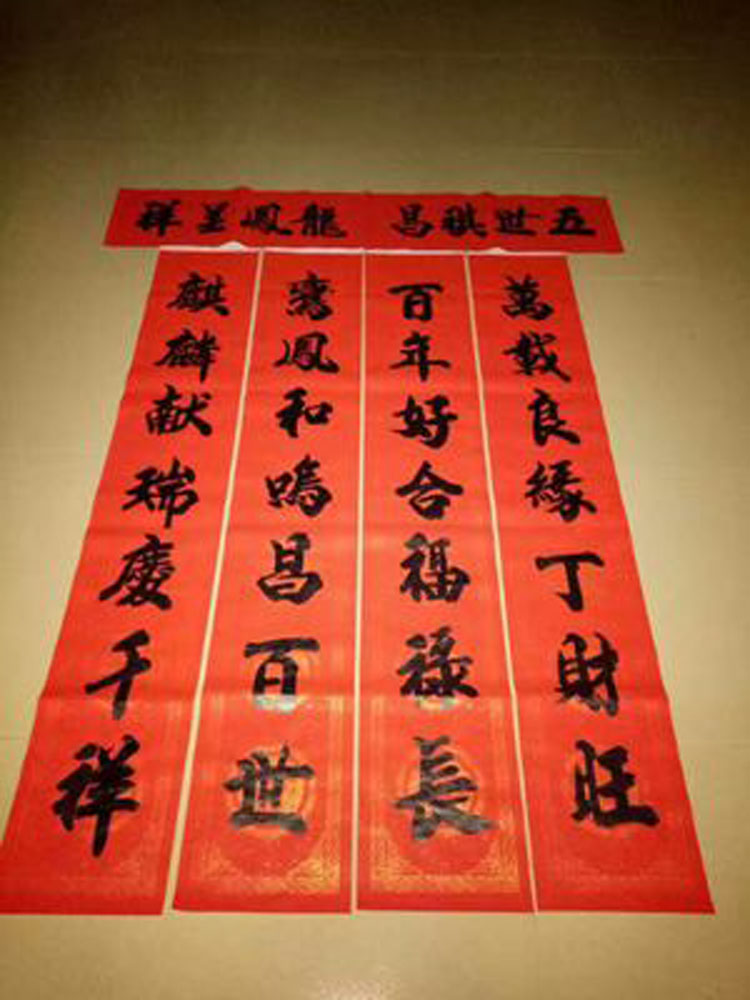 五世祺昌 龍鳳呈祥
萬載良緣丁財旺
百年好合福祿長
鸞鳳和鳴昌百世
麒麟献瑞慶千祥